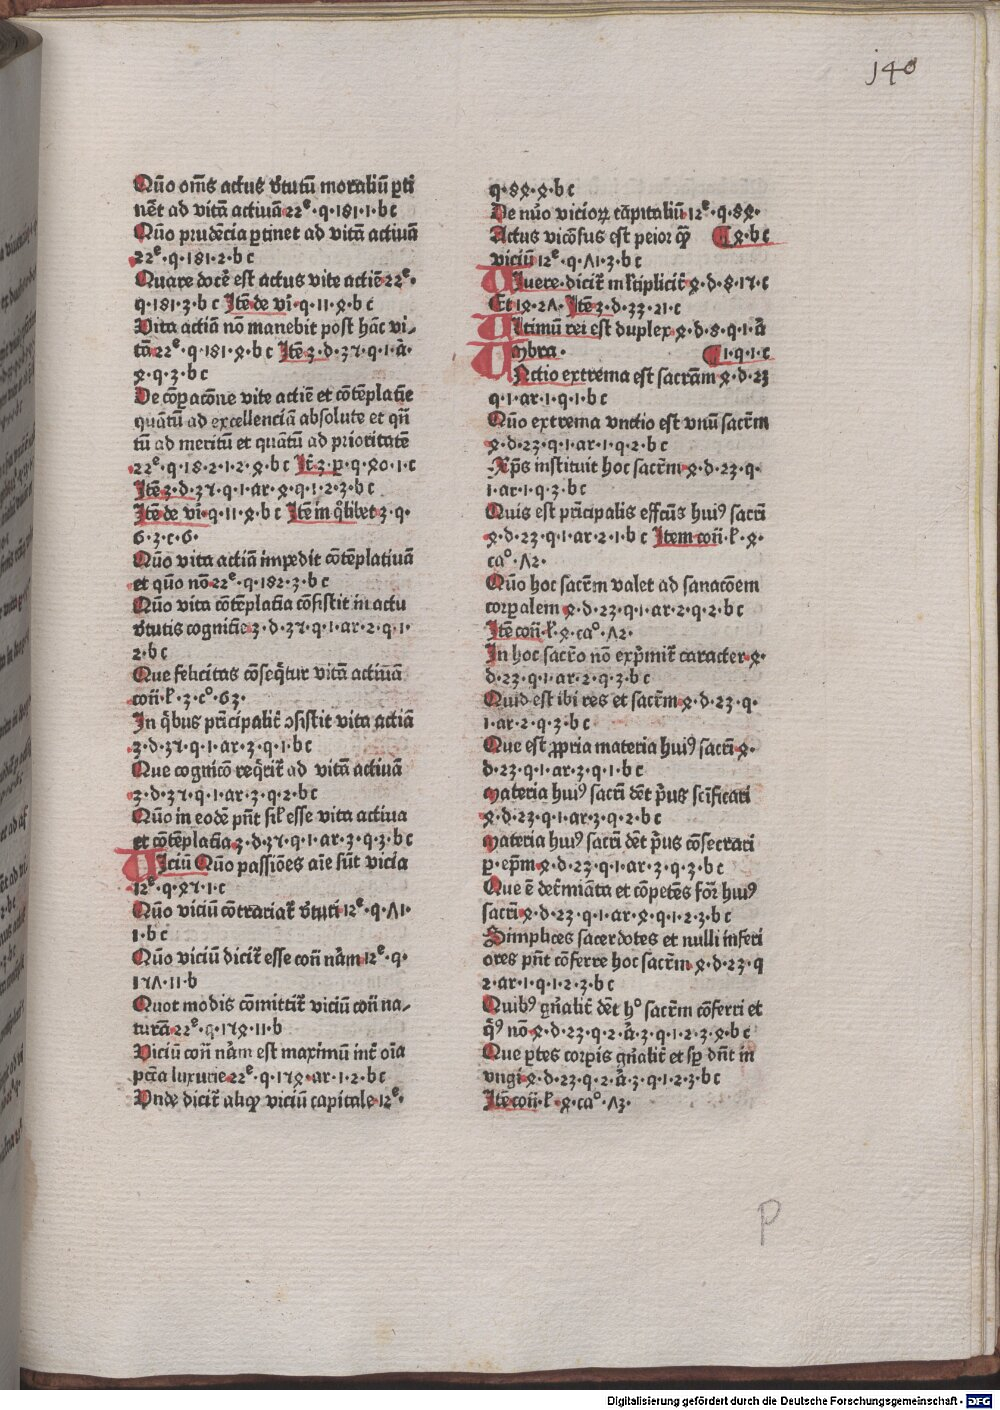 140
Quō om̄s actus v̄tutū moraliū ꝑti
nēt ad vitā actiuā 22ᵉ·q·181·1·bc
Quō prudēcia ꝑtinet ad vitā actiuā
22ᵉ·q·181·2·bc
Quare docēʳ est actus vite actiē 22ᵉ·
q·181·3·bc Itē de vī·q·11·ꝯ·bc
Vita actiā nō manebit post hāc vi⸗
tā 22ᵉ·q·181·4·bc Itē 3·d·37·q·1·ā·
4·q·3·bc
De cōꝑacōne vite actiē et cōtēplatie
quātū ad excellenciā absolute et qn̄
tū ad meritū et quātū ad prioritatē
22ᵉ·q·18·2·1·2·4·bc It̄ 3·p·q·40·1·c
Itē 3·d·37·q·1·ar·4·q·1·2·3·bc
Itē de vī·q·11·4·bc Itē in q̄libet 3·q·
6·3·c·6·
Quō vita actiā impedit cōtēplatiuā
et quō nō 22ᵉ·q·182·3·bc
Quō vita cōtēplatia cōsistit in actu
v̄tutis cognitie 3·d·37·q·1·ar·2·q·1·
2·bc
Que felicitas cōseq̄tur vitā actiuā
con̄·l̄·3·c°·63·
In q̄bus prīcipalit̄ ɔsistit vita actiā
3·d·37·q·1·ar·3·q·1·bc
Que cognicō req̄rit̄ ad vitā actiuā
3·d·37·q·1·ar·3·q·2·bc
Quō in eodē pn̄t sil̄ esse vita actiua
et cōtēplatia 3·d·37·q·1·ar·3·q·3·bc
VIciū Quō passiōes aīe sūt vicia
12ᵉ·q·47·1·c
Quō viciū cōtrariat̄ v̄tuti 12ᵉ·q·Λ1·
1·bc
Quō viciū dicit̄ esse con̄ nām 12ᵉ·q·
17Λ·11·b
Quot modis cōmittit̄ viciū con̄ na⸗
turā 22ᵉ·q·174·11·b
Viciū con̄ nām est maximū int̄ oīa
pctā luxurie 22ᵉ·q·174·ar·1·2·bc
Vnde dicit̄ aliqꝫ viciū capitale 12ᵉ·
q·84·4·bc
De nūo vicioꝝ cāpitaliū 12ᵉ·q·84·
Actus vicōsus est peior q̄ꝫ ¶ 4·bc
viciū 12ᵉ·q·Λ1·3·bc
VIuere dicit̄ ml̄tiplicit̄ 4·d·8·17·c
Et 14·2Λ· Itē 3·d·33·21·c
VLtimū rei est duplex 4·d·8·q·1·ā
Vmbra· ¶ 1·q·1·c
VNctio extrema est sacrām 4·d·23
q·1·ar·1·q·1·bc
Quō extrema vnctio est vnū sacr̄m
4·d·23·q·1·ar·1·q·2·bc
Xp̄s instituit hoc sacr̄m 4·d·23·q·
1·ar·1·q·3·bc
Quis est prīcipalis effc̄us huiꝰ sacrī
4·d·23·q·1·ar·2·1·bc Item con̄·l̄·4·
ca°·Λ2·
Quō hoc sacr̄m valet ad sanacōem
corꝑalem 4·d·23·q·1·ar·2·q·2·bc
Itē con̄·l̄·4·ca°·Λ2·
In hoc sacr̄o nō exp̄mit̄ caracter 4·
d·23·q·1·ar·2·q·3·bc
Quid est ibi res et sacr̄m 4·d·23·q·
1·ar·2·q·3·bc
Que est ꝓpria materia huiꝰ sacrī 4·
d·23·q·1·ar·3·q·1·bc
Materia huiꝰ sacrī dēt p̄us sc̄ificari
4·d·23·q·1·ar·3·q·2·bc
Materia huiꝰ sacrī dēt p̄us cōsecrari
p·ep̄m 4·d·23·q·1·ar·3·q·3·bc
Que ē det̄miāta et cōpetēs fōr huiꝰ
sacrī 4·d·23·q·1·ar·4·q·1·2·3·bc
Simplices sacerdotes et nulli inferi
ores pn̄t cōferre hoc sacr̄m 4·d·23·q
2·ar·1·q·1·2·3·bc
Quibꝰ gn̄alit̄ dēt h° sacr̄m cōferri et
q̄ꝰ nō 4·d·23·q·2·ā·3·q·1·2·3·4·bc
Que ꝑtes corpis gn̄alit̄ et sꝑ dn̄t in
vngi 4·d·23·q·2·ā·3·q·1·2·3·bc
Itē con̄·l̄·4·ca°·Λ3·
p
Digitalisierung gefördert durch die Deutsche Forschungsgemeinschaft · DFG